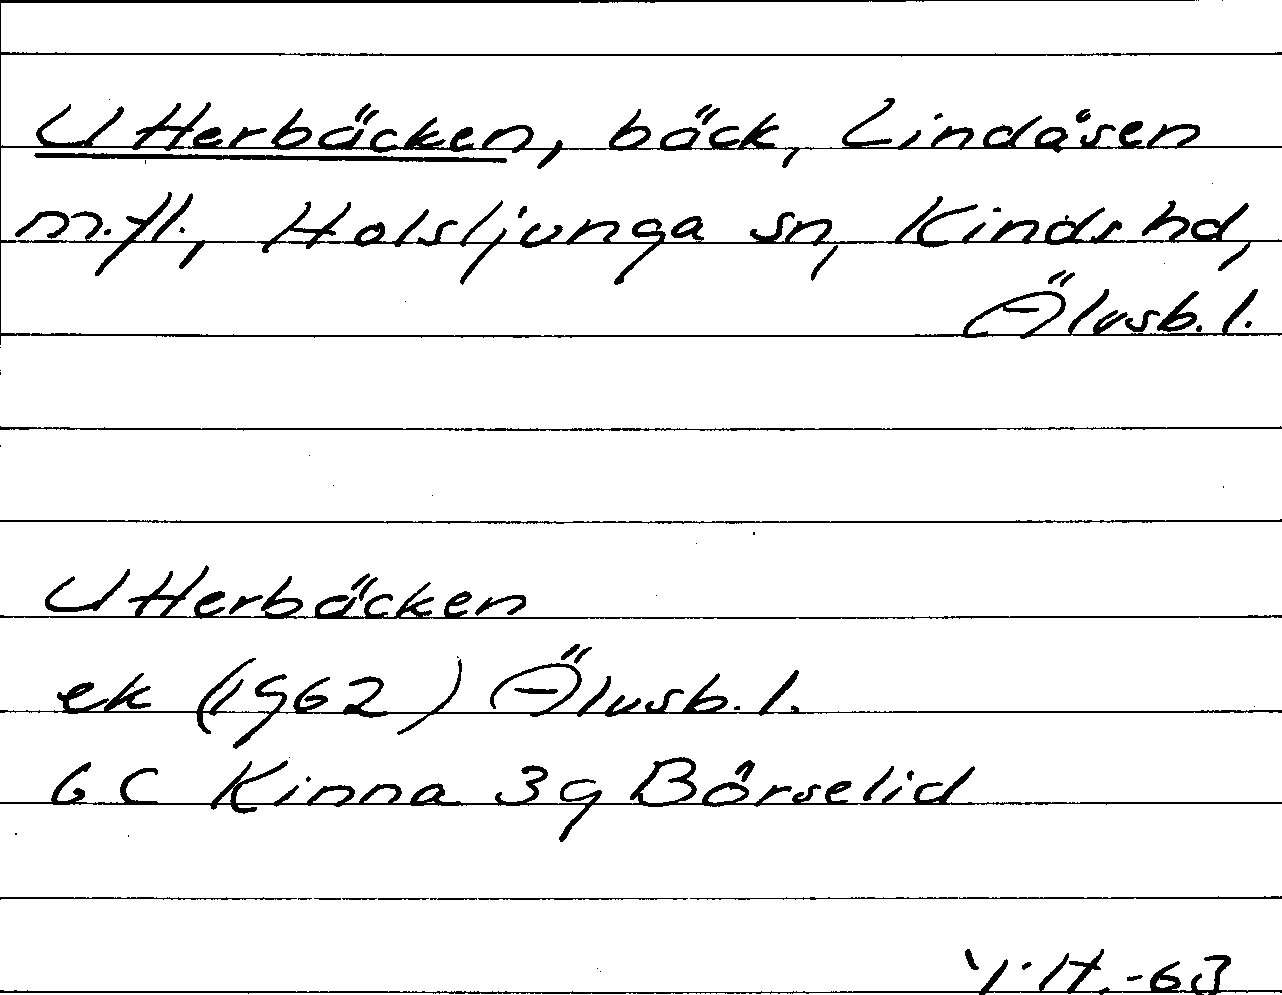 Utterbäcken, bäck, Lindåsen
m.fl., Holsljunga sn, Kinds hd,
Älvsb. l.
Utterbäcken
ek (1962) Älvsb. l.
6 C Kinna 3g Börselid
-63